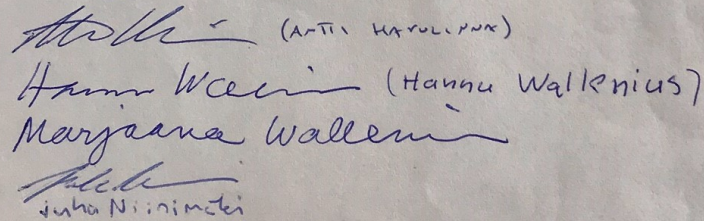 (ANTTI HAVULINNA)
Hannu Wallenius (Hannu Wallenius)
Marjaana Wallenius
Juha Niinimäki